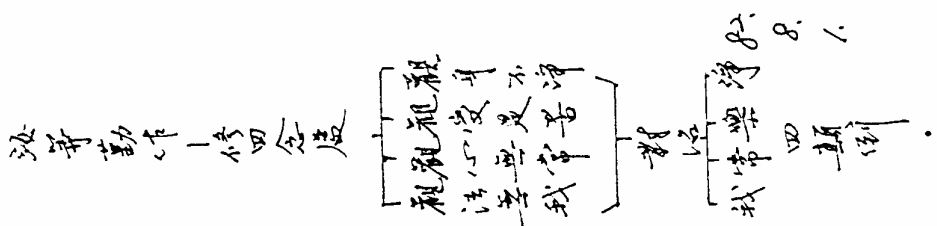 汝等勤作—修四念處
觀身不淨
觀受是苦
觀心無常
觀法無我
對治
淨
樂
常
我
四顛倒.
82.8.1.